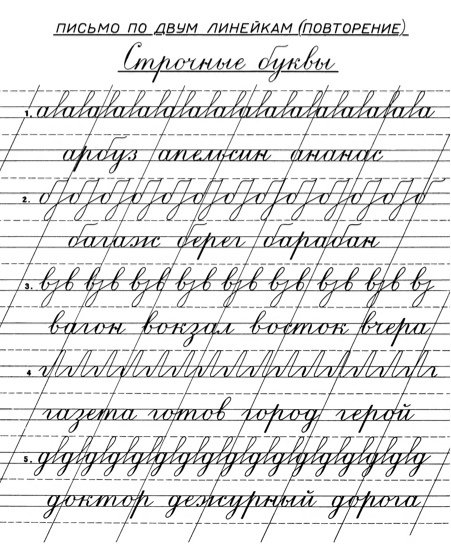 ПИСЬМО ПО ДВУМ ЛИНЕЙКАМ (ПОВТОРЕНИЕ)
Строчные буквы
1.
арбуз апельсин ананас
2.
багаж берег барабан
3.
вагон вокзал восток вчера
4
газета готов город герой
5.
доктор дежурный дорога